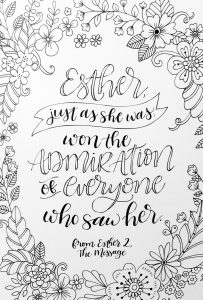 Esther,
just as she was,
won the
ADMIRATION
of everyone
who saw her.
from Esther 2,
The Message